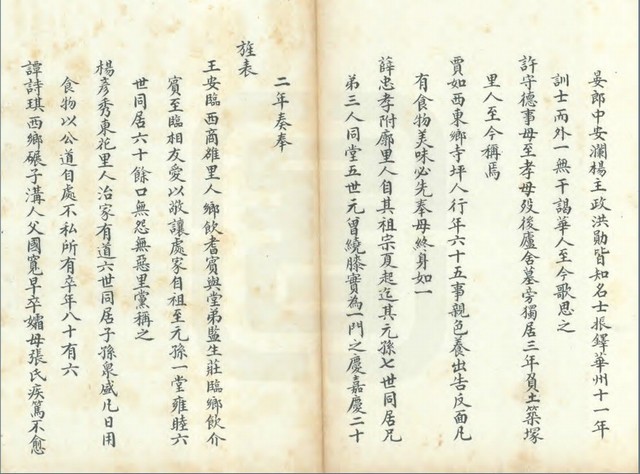 晏郎中安瀾楊主政洪勛皆知名士振鐸華州十一年
訓士而外一無干謁華人至今歌思之
許守德事母至孝母歿後廬舍墓旁獨居三年負土築塚
里人至今稱焉
賈如西東鄉寺坪人行年六十五事親色養出告反面凡
有食物美味必先奉母終身如一
薛忠孝附廓里人自其祖宗夏起迄其元孫七世同居兄
弟三人同堂五世元曾繞膝實為一門之慶嘉慶二十
二年奏奉
旌表
王安臨西商雄里人鄉飲耆賓與堂弟監生莊臨鄉飲介
賓至臨相友愛以敬讓處家自祖至元孫一堂雍睦六
世同居六十餘口無怨無惡里黨稱之
楊彥秀東花里人治家有道六世同居子孫衆盛凡日用
食物以公道自處不私所有卒年八十有六
譚詩琪西鄉碾子溝人父國寬早卒孀母張氏疾篤不愈